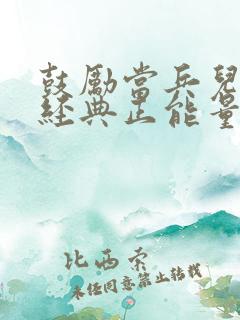 鼓励當兵兒
經典正能量
比西索
未经同意禁止转载